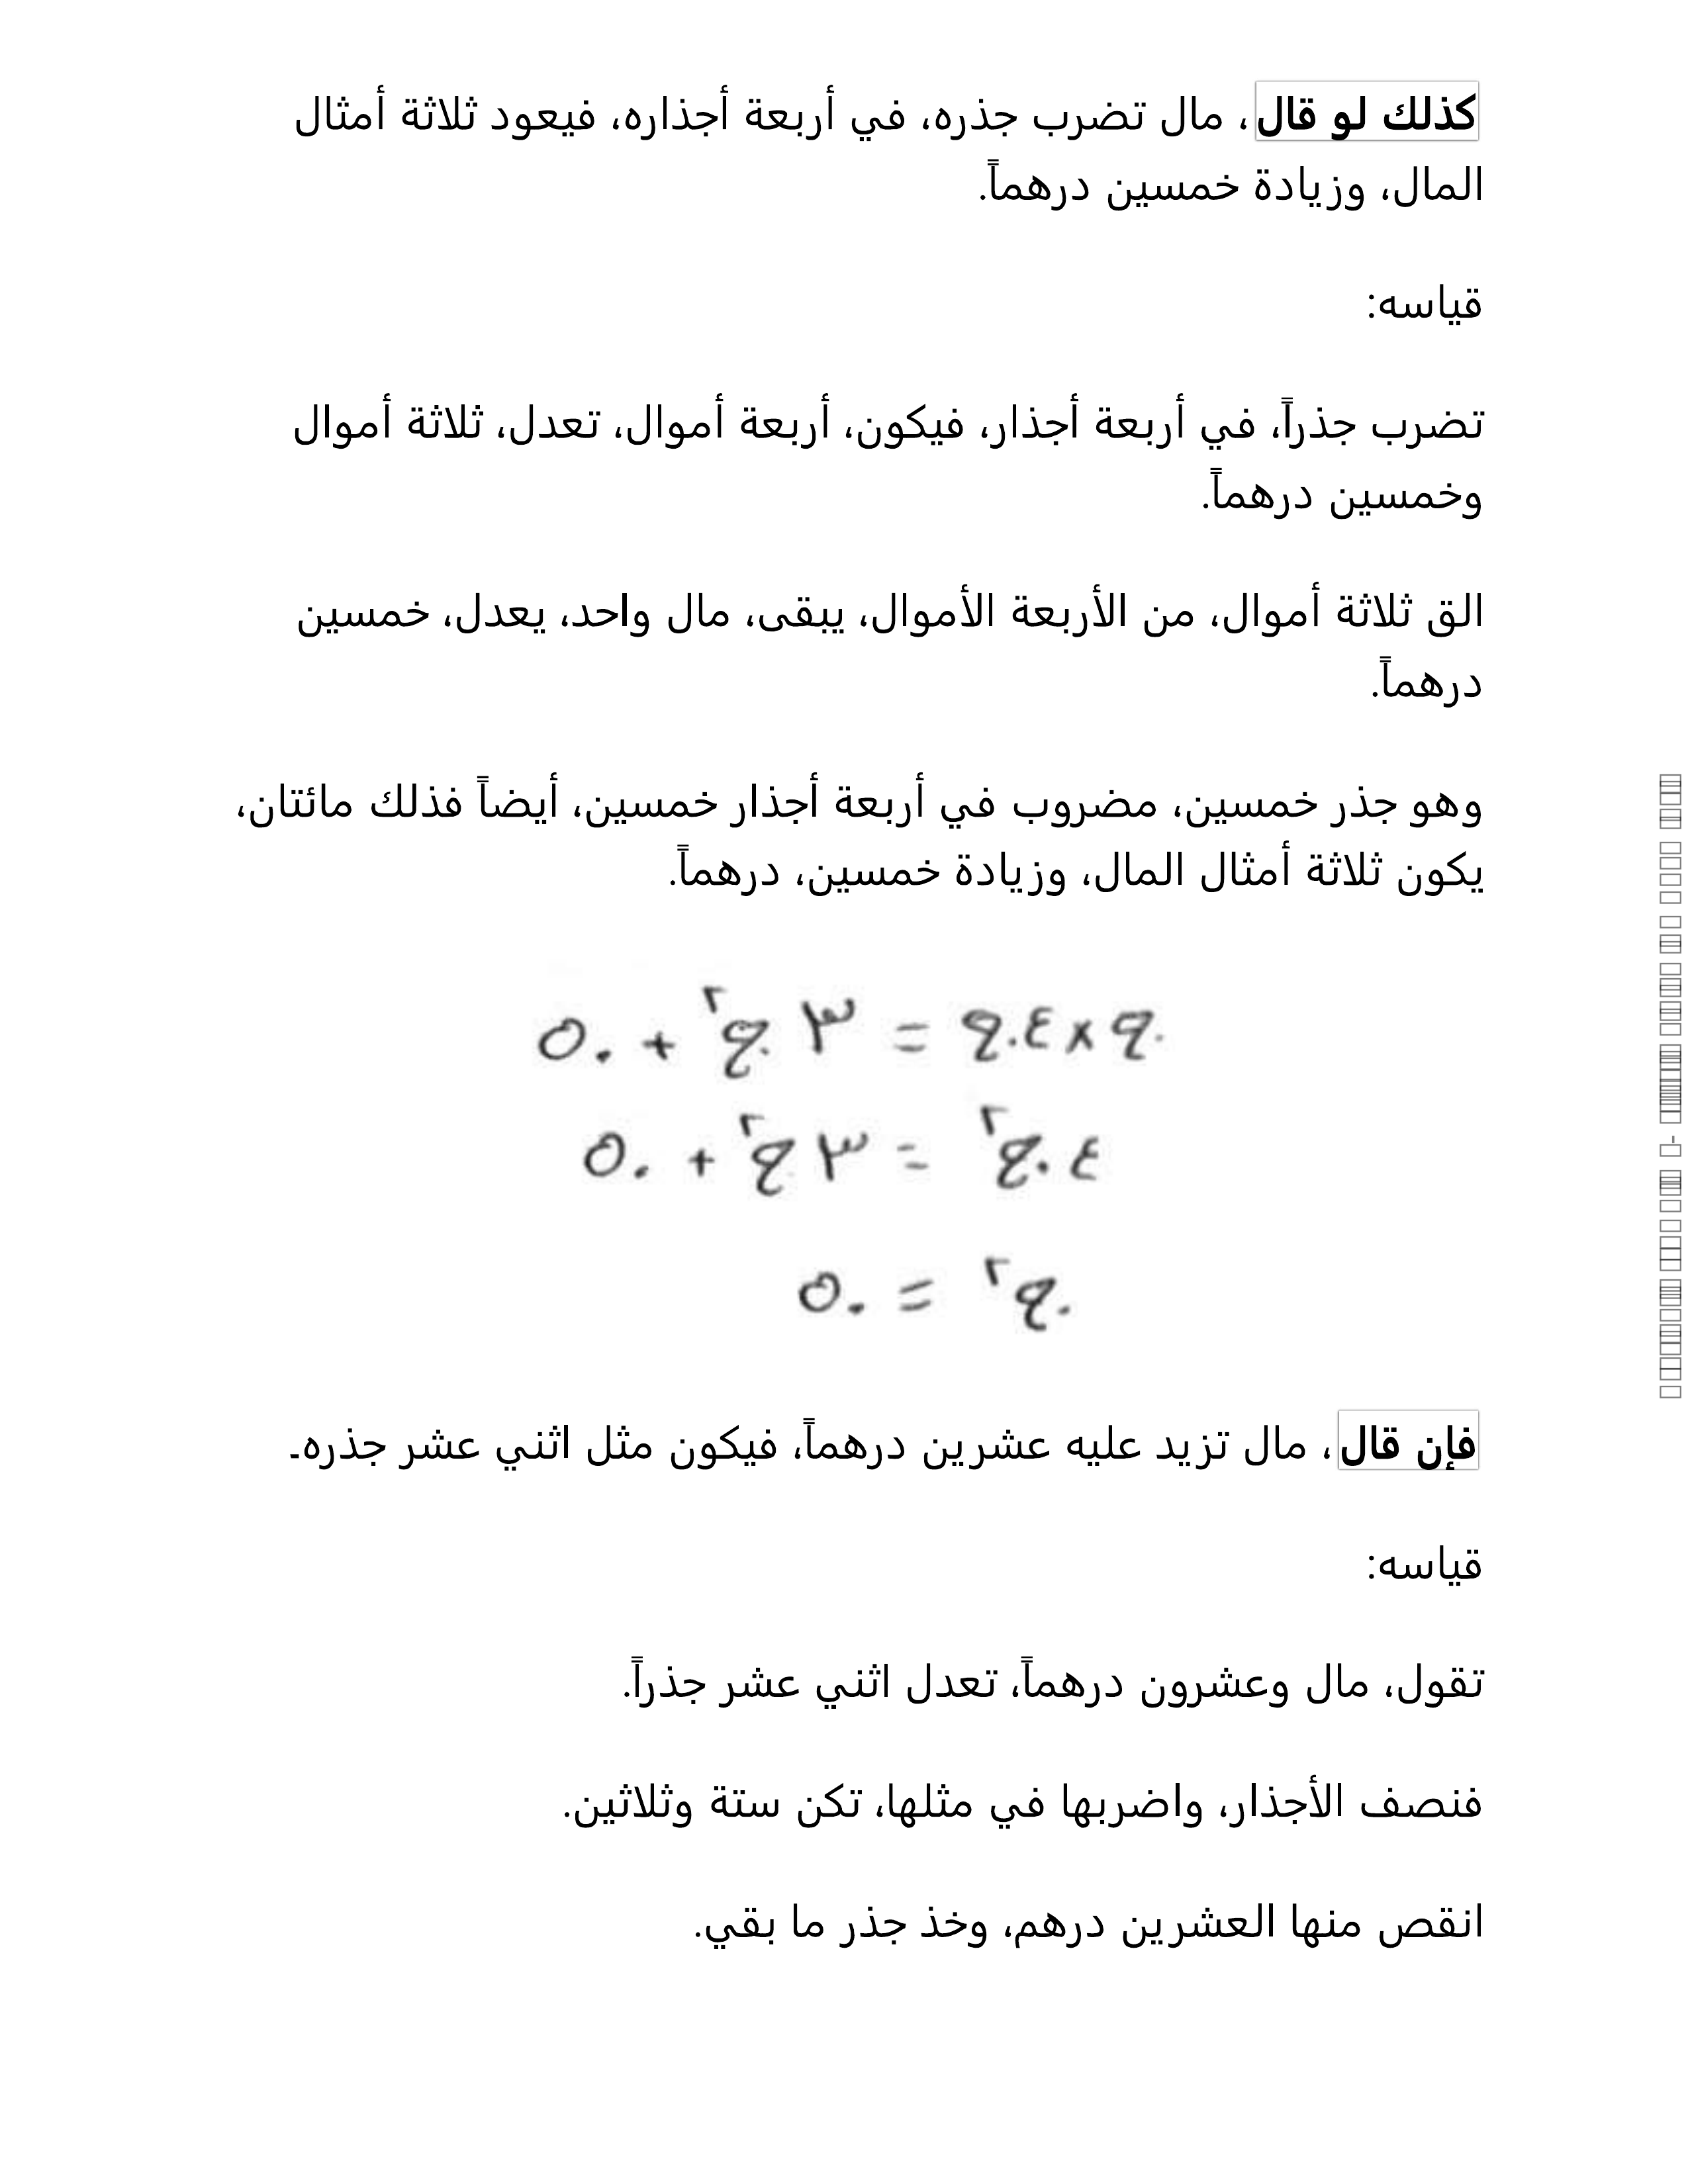 كذلك لو قال، مال تضرب جذره، في أربعة أجذاره، فيعود ثلاثة أمثال
المال، وزيادة خمسين درهماً.
قياسه:
تضرب جذراً، في أربعة أجذار، فيكون، أربعة أموال، تعدل، ثلاثة أموال
وخمسين درهماً.
الق ثلاثة أموال، من الأربعة الأموال، يبقى، مال واحد، يعدل، خمسين
درهماً.
وهو جذر خمسين، مضروب في أربعة أجذار خمسين، أيضاً فذلك مائتان،
يكون ثلاثة أمثال المال، وزيادة خمسين، درهماً.
ج × ٤ج = ٣ ج٢ + ٥٠
٤ ج٢ = ٣ ج٢ + ٥٠
ج٢ = ٥٠
فإن قال، مال تزيد عليه عشرين درهماً، فيكون مثل اثني عشر جذره۔
قياسه:
تقول، مال وعشرون درهماً، تعدل اثني عشر جذراً.
فنصف الأجذار، واضربها في مثلها، تكن ستة وثلاثين.
انقص منها العشرين درهم، وخذ جذر ما بقي.